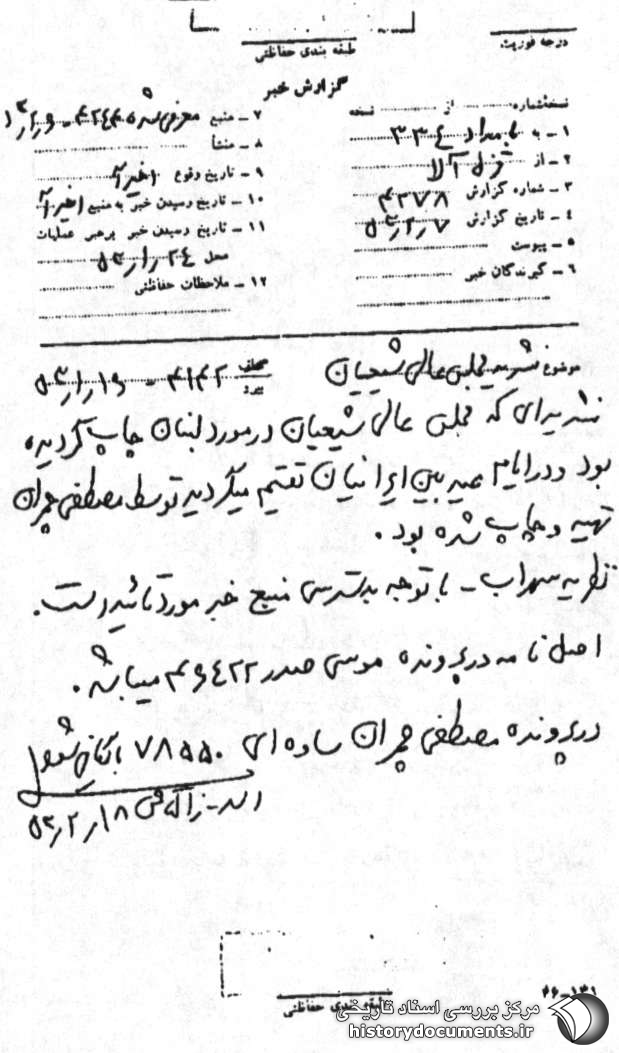 درجه فوریت
طبقه بندی حفاظتی
گزارش خبر
نسخه‌شماره ........ از ........ نسخه
۱ - به بامداد ۳۳۴
۲ - از غزل آلا
۳ - شماره گزارش ۴۲۷۸
۴ - تاریخ گزارش ۵۳٫۲٫۷
۵ - پیوست
۶ - گیرندگان خبر
۷ - منبع معرفی شده ۴۲۴۴۵
۸ - منشأ
۹ - تاریخ وقوع اخیراً
۱۰ - تاریخ رسیدن خبر به منبع اخیراً
۱۱ - تاریخ رسیدن خبر برهبر عملیات
محل ۵۳٫۱٫۲۴
۱۲ - ملاحظات حفاظتی
موضوع نشریه مجلس عالی شیعیان
عطف
پیرو
۴۱۴۲ - ۵۳٫۱٫۱۹
نشریه‌ای که مجلس عالی شیعیان در مورد لبنان چاپ گردیده
بود و در ایام عید بین ایرانیان تقسیم میگردید توسط مصطفی چمران
تهیه و چاپ شده بود.
نظریه سهراب - با توجه بدسترسی منبع خبر مورد تائید است.
اصل نامه در پرونده موسی صدر ۴۹۴۲۲ میباشد.
در پرونده مصطفی چمران ساده‌ای ۷۸۵۵۰ بایگانی شود
۵۳٫۲٫۱۸
طبقه بندی حفاظتی
۴۶-۱۳۱
مرکز بررسی اسناد تاریخی
historydocuments.ir